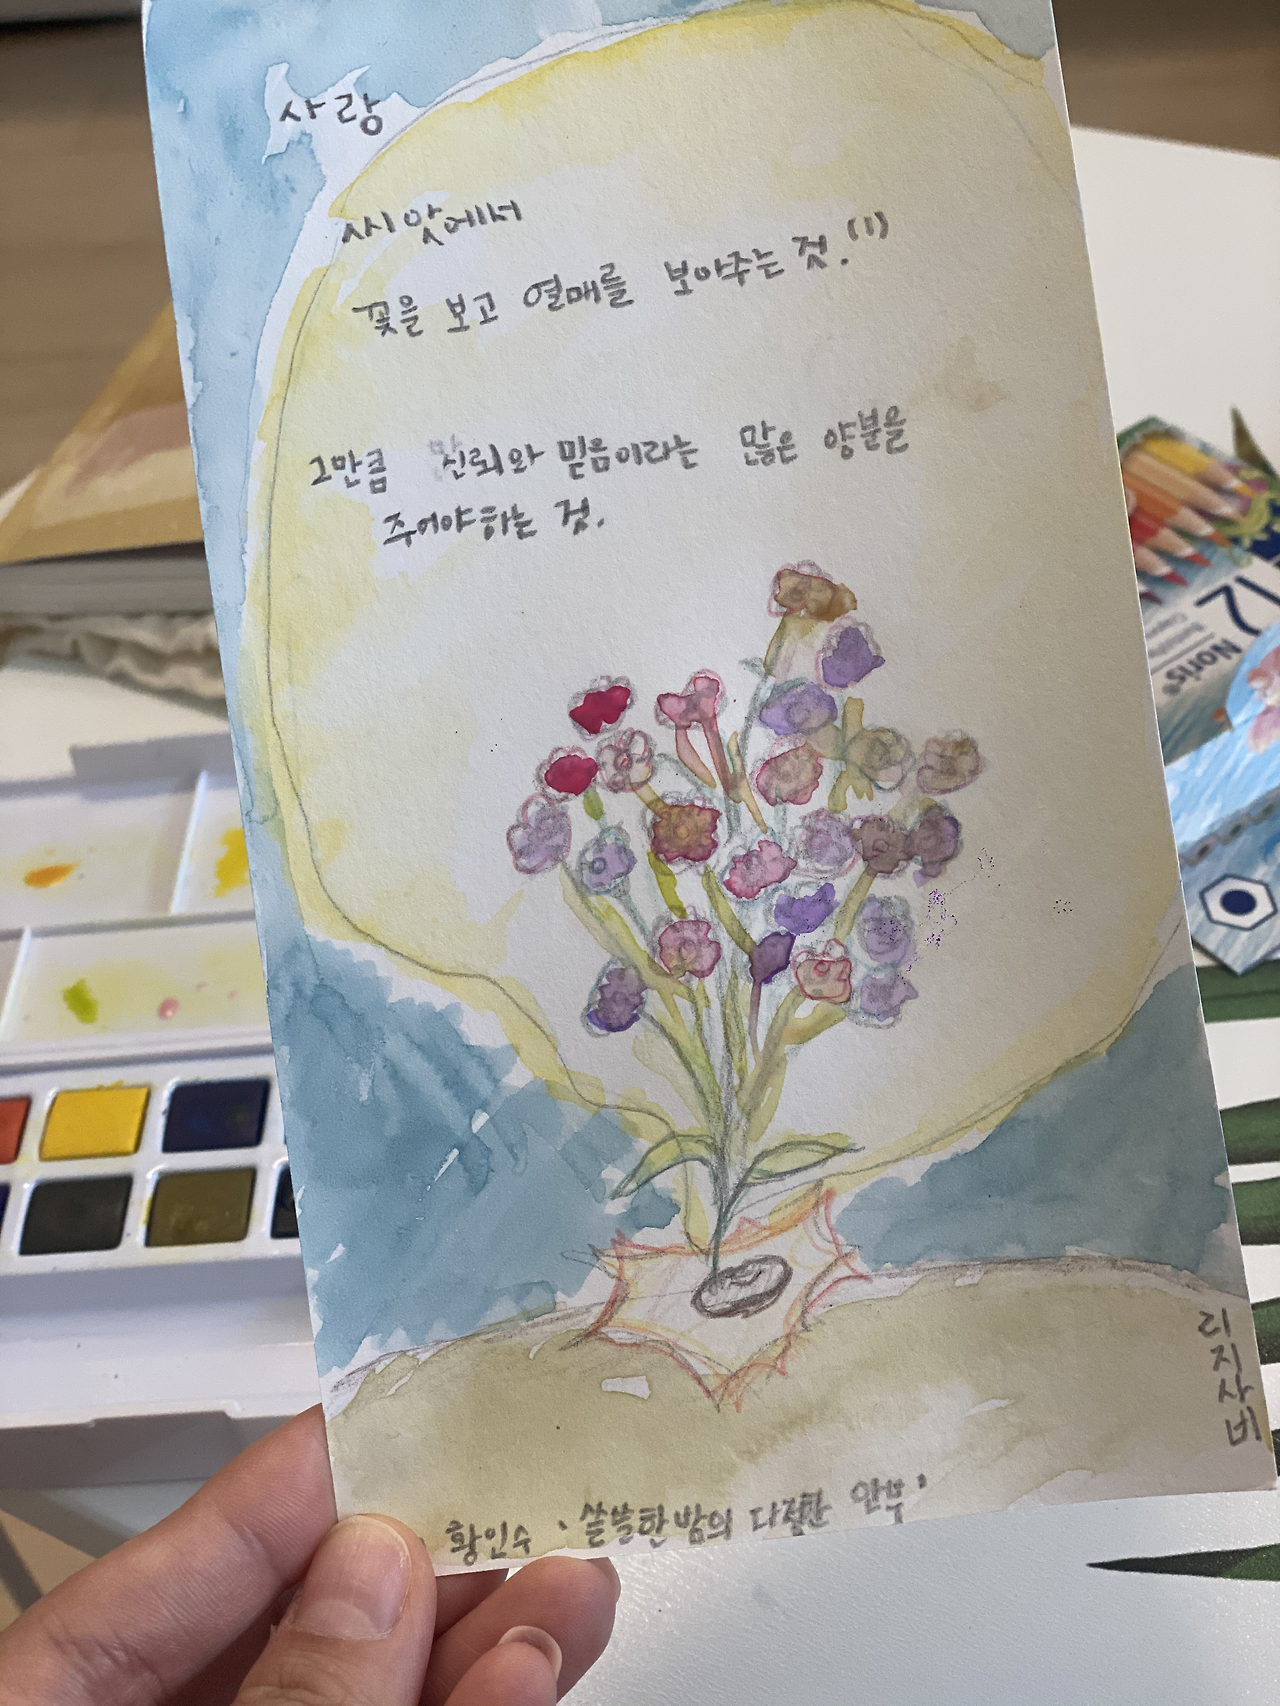 사랑
씨앗에서
꽃을 보고 열매를 보아주는 것.(1)
그만큼 신뢰와 믿음이라는 많은 양분을
주어야하는 것.
리지사비
황인수 '쓸쓸한 밤의 다정한 안부'
12
Noris